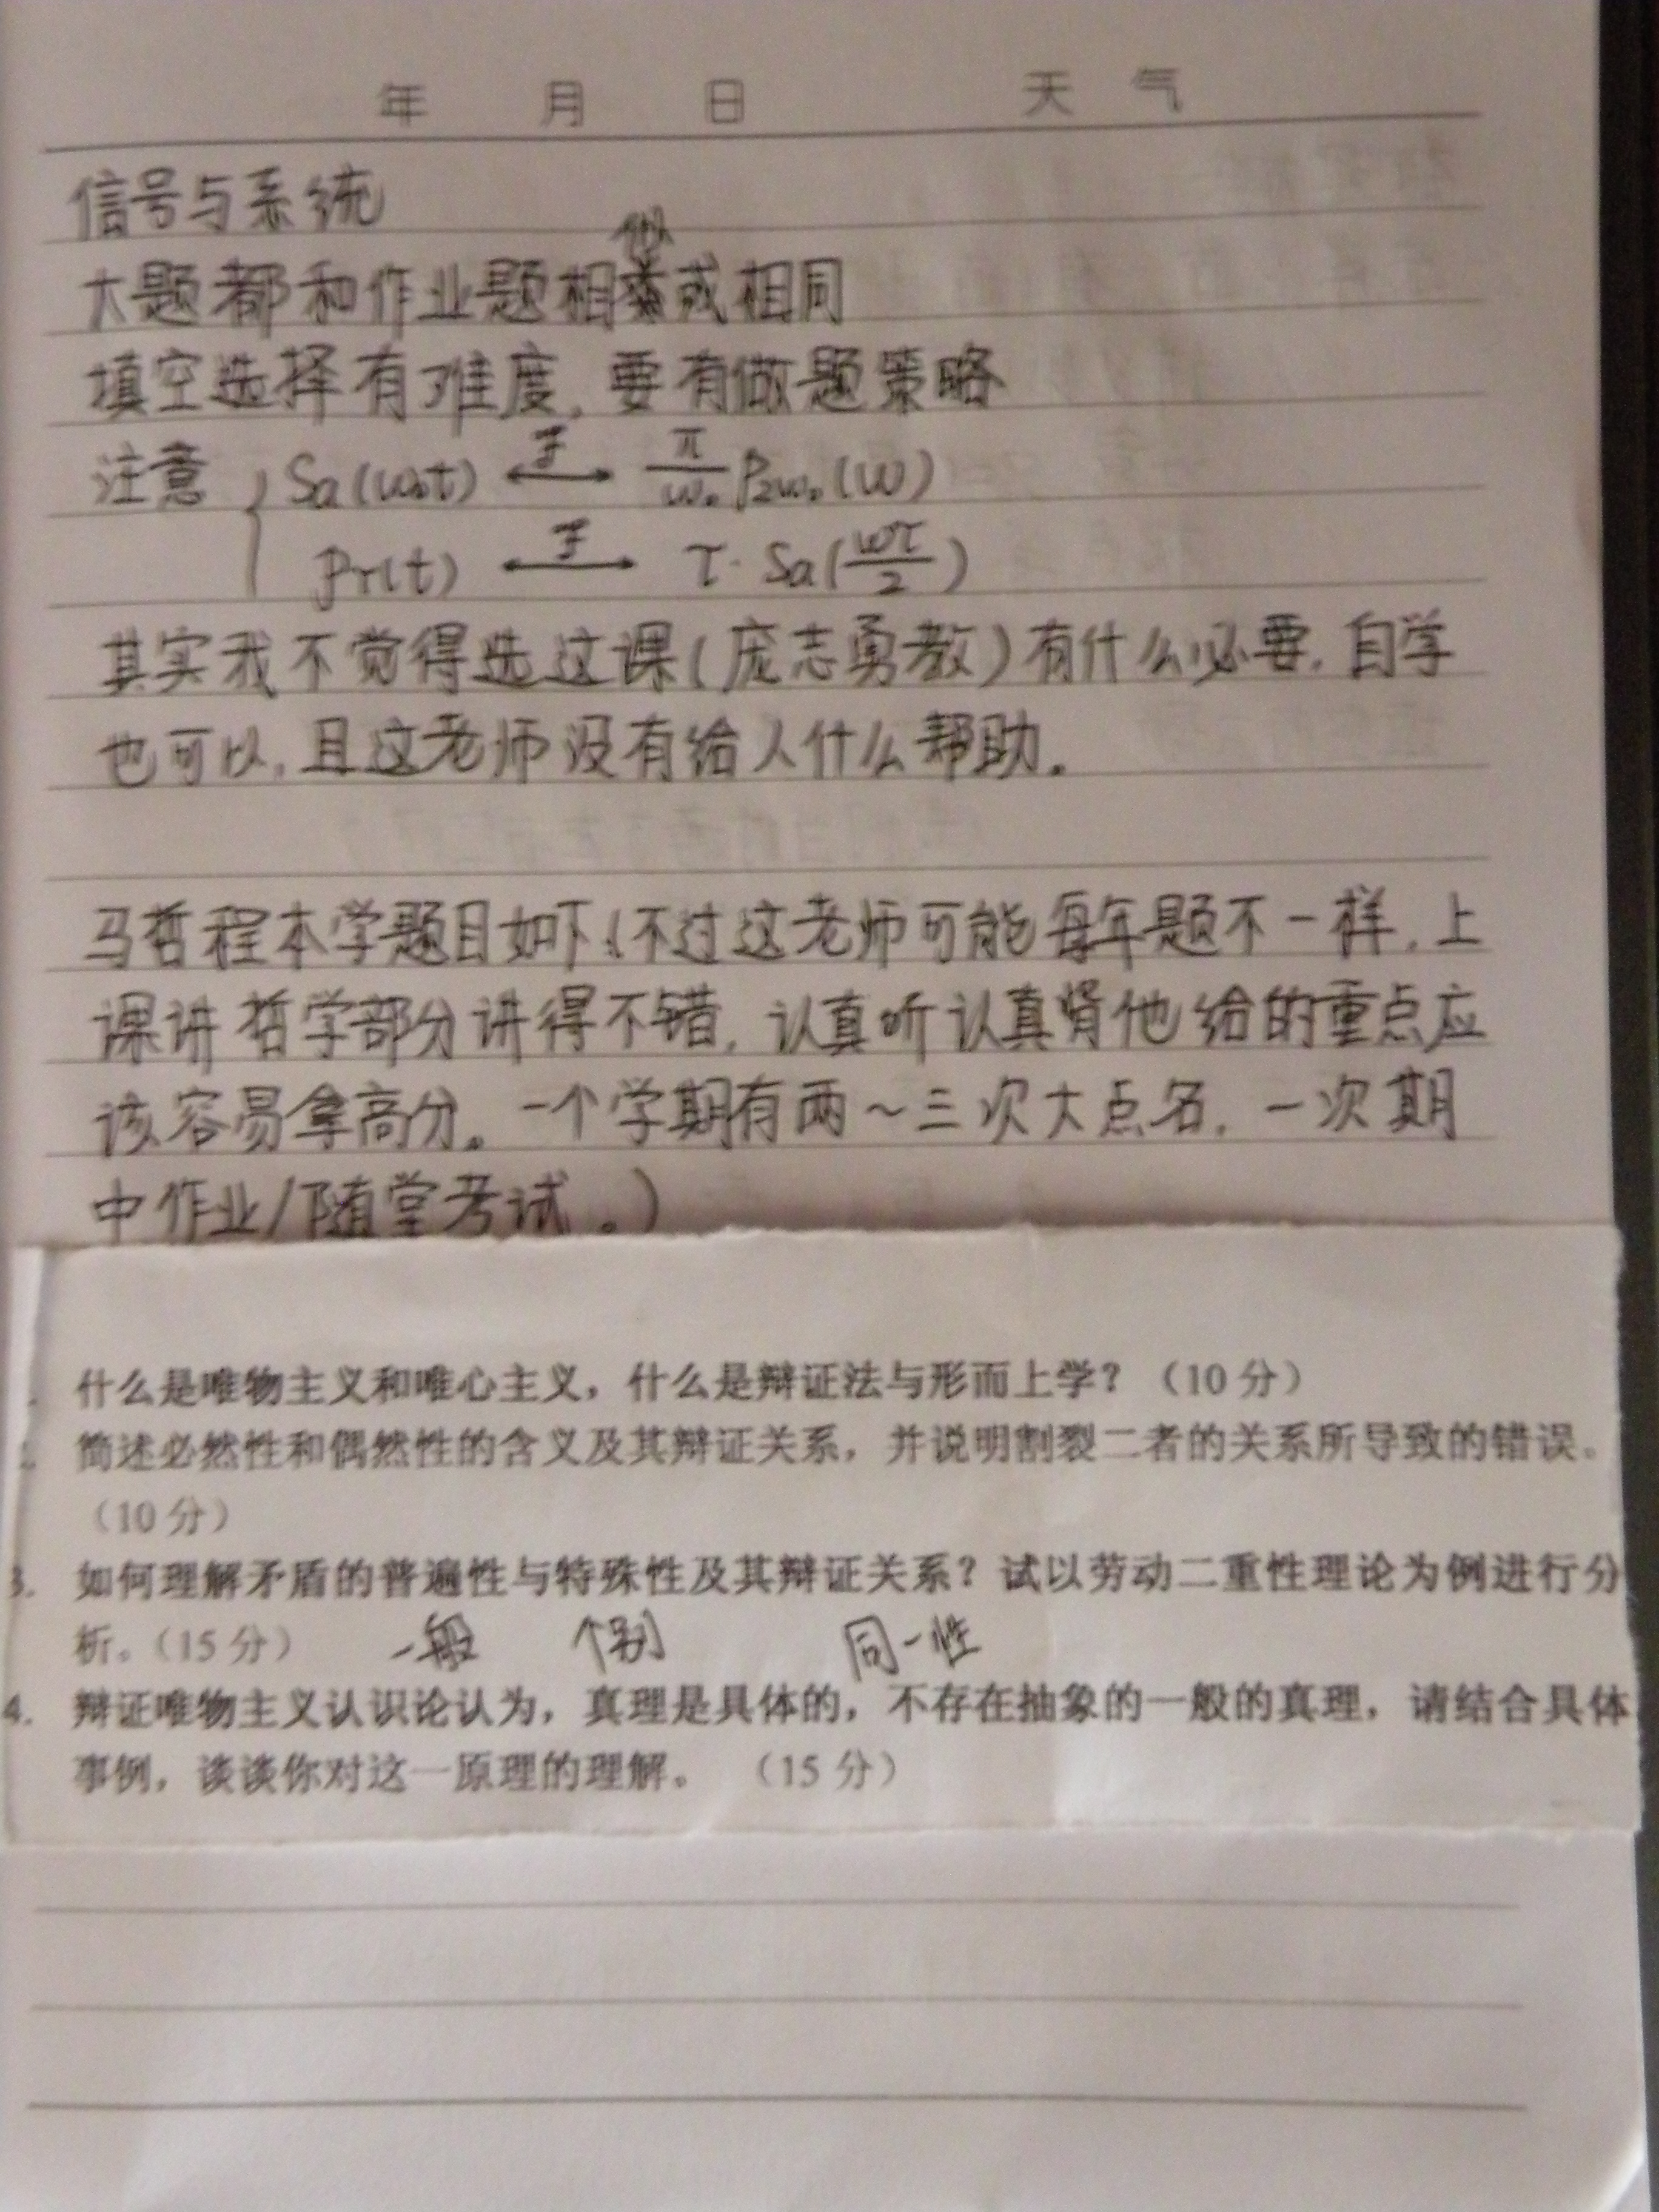 年 月 日 天 气
信号与系统
大题都和作业题相似或相同
填空选择有难度,要有做题策略
注意 { Sa(ω₀t) ⟷ℱ π/ω₀ p₂ω₀(ω)
pτ(t) ⟷ℱ τ·Sa(ωτ/2)
其实我不觉得选这课(庞志勇教)有什么必要,自学
也可以,且这老师没有给人什么帮助。
马哲程本学题目如下(不过这老师可能每年题不一样,上
课讲哲学部分讲得不错,认真听认真背他给的重点应
该容易拿高分。一个学期有两~三次大点名,一次期
中作业/随堂考试。)
什么是唯物主义和唯心主义,什么是辩证法与形而上学?(10 分)
简述必然性和偶然性的含义及其辩证关系,并说明割裂二者的关系所导致的错误。
(10 分)
3. 如何理解矛盾的普遍性与特殊性及其辩证关系?试以劳动二重性理论为例进行分
析。(15 分) 一般 个别 同一性
4. 辩证唯物主义认识论认为,真理是具体的,不存在抽象的一般的真理,请结合具体
事例,谈谈你对这一原理的理解。 (15 分)